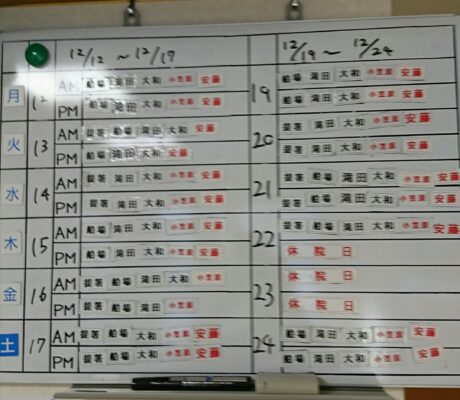 12/12 ~ 12/17 12/19 ~ 12/24
月 12 AM 船場 滝田 大和 小笠原 安藤 19 船場 滝田 大和 小笠原 安藤
PM 船場 滝田 大和 小笠原 安藤 船場 滝田 大和 小笠原 安藤
火 13 AM 滝田 大和 安藤 20 滝田 大和 小笠原 安藤
PM 船場 滝田 大和 安藤 滝田 大和 小笠原 安藤
水 14 AM 滝田 大和 小笠原 安藤 21 船場 滝田 大和 小笠原 安藤
PM 滝田 大和 小笠原 安藤 船場 滝田 大和 小笠原 安藤
木 15 AM 船場 滝田 大和 小笠原 安藤 22 船場 滝田 大和 小笠原 安藤
PM 船場 滝田 大和 小笠原 安藤 休 院 日
金 16 AM 船場 滝田 大和 小笠原 23 休 院 日
PM 船場 滝田 小笠原 休 院 日
土 17 AM 船場 大和 小笠原 安藤 24 船場 滝田 大和 小笠原 安藤
PM 船場 大和 小笠原 安藤 船場 滝田 大和 小笠原 安藤